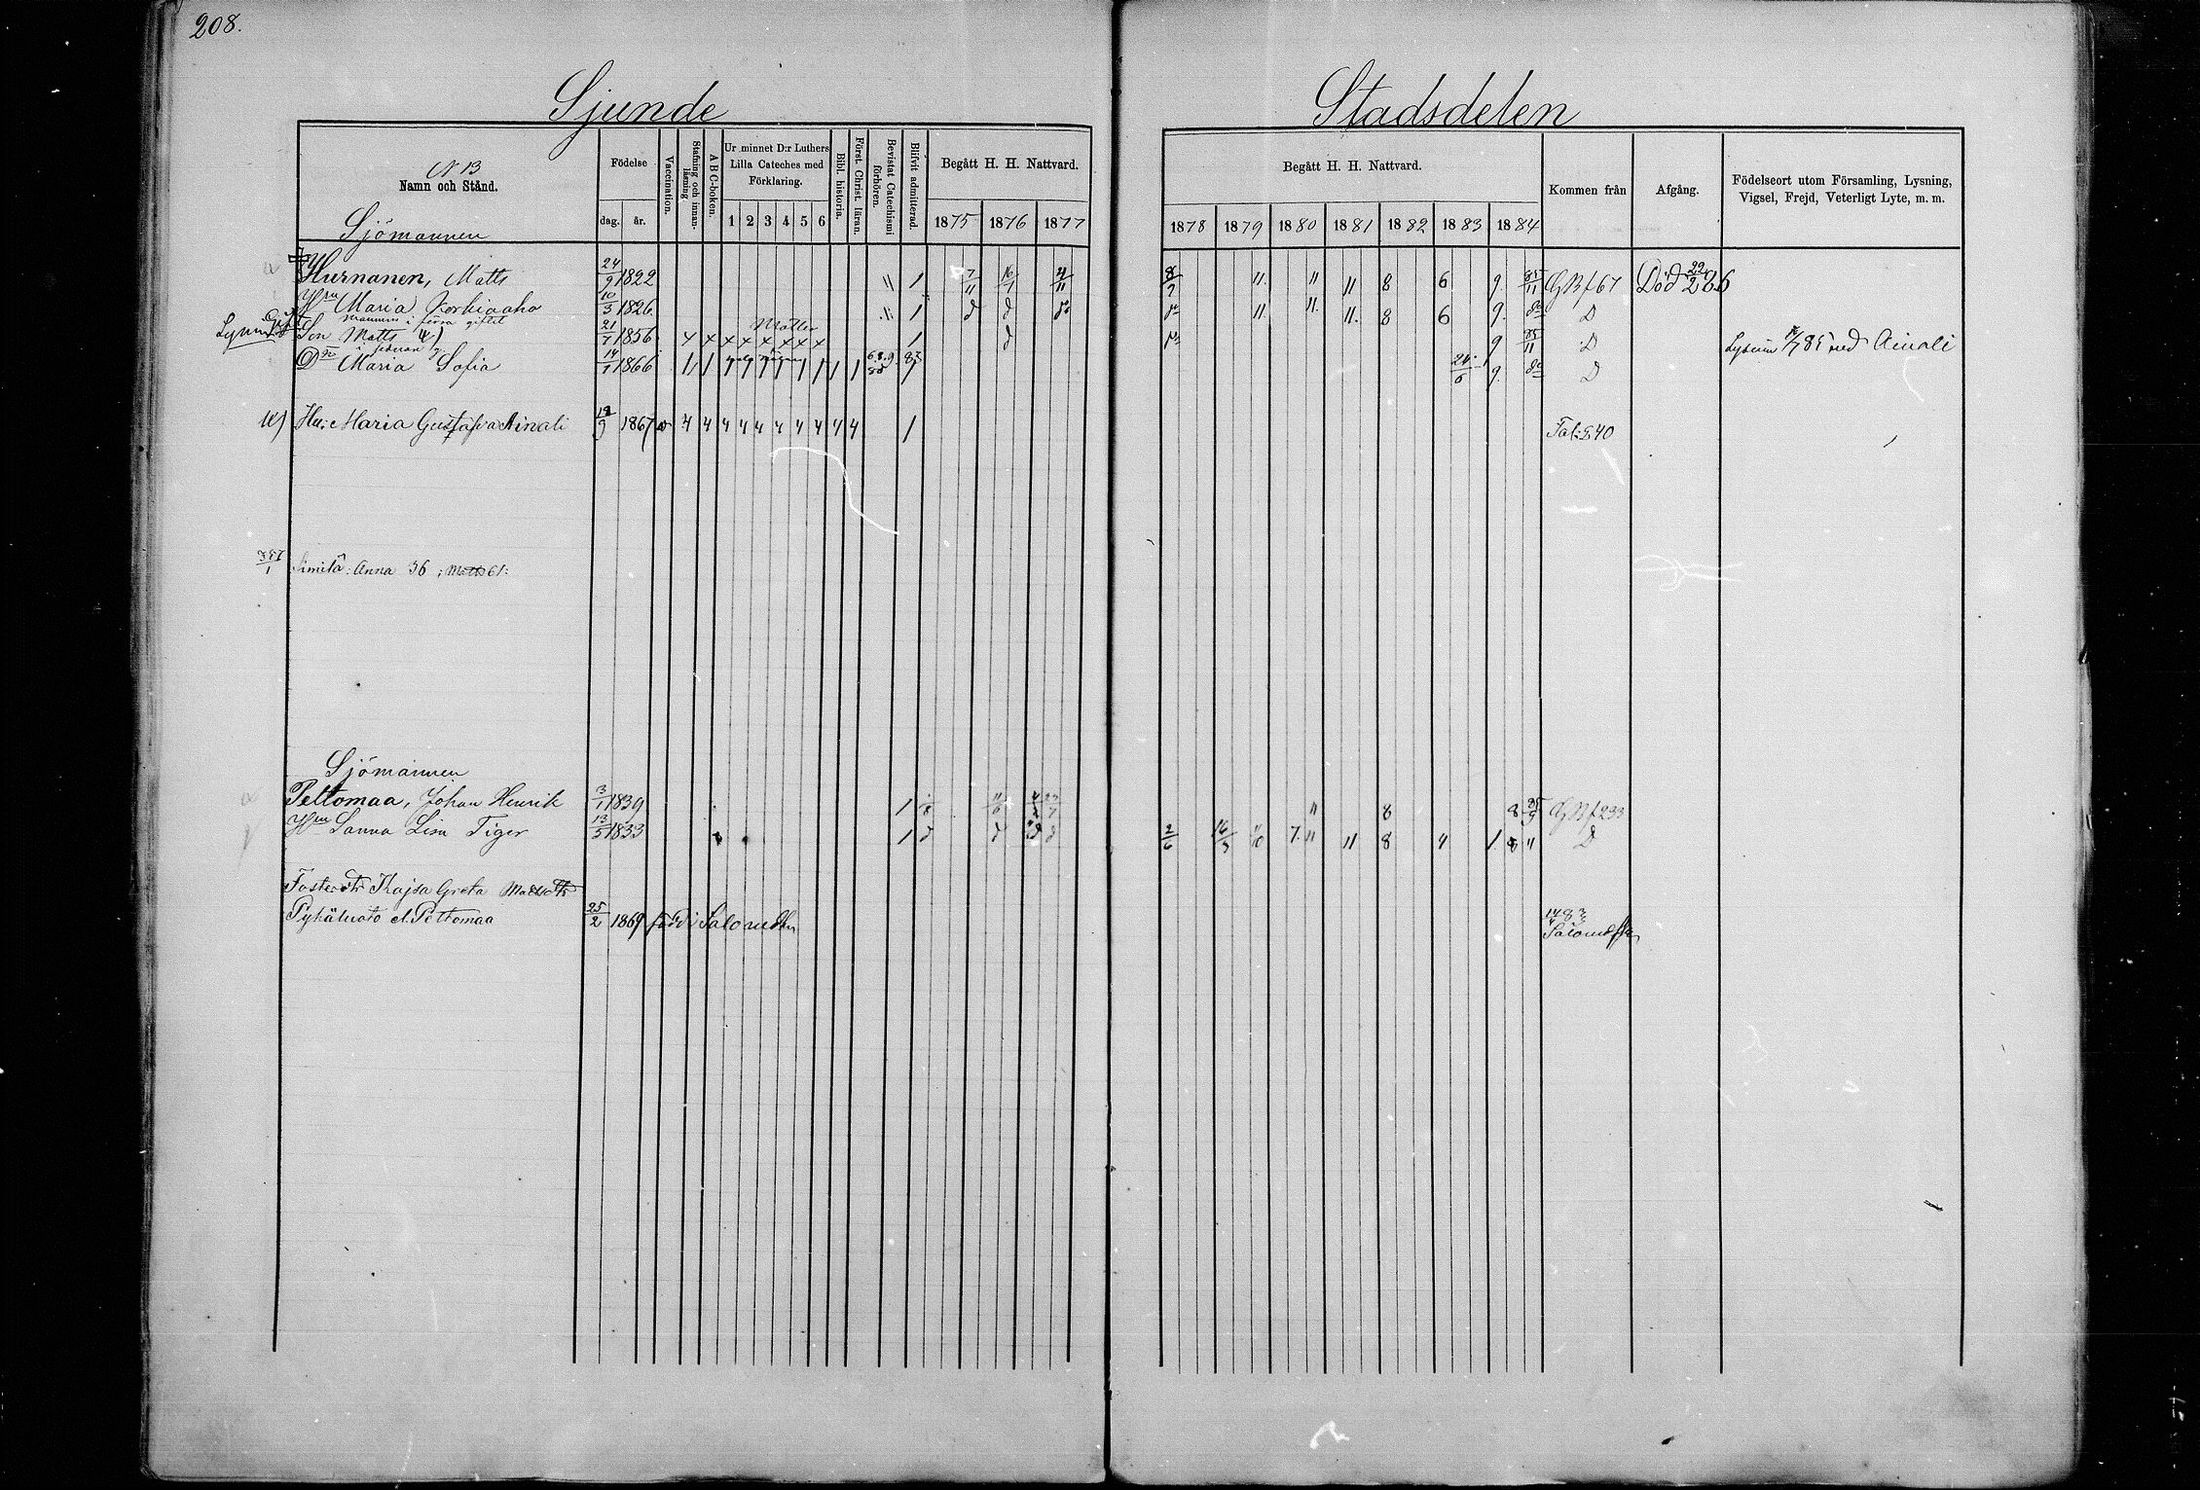 208.
Sjunde Stadsdelen
N 13
Namn och Stånd.
Födelse
dag. år.
Vaccination.
Stafning och innanläsning
ABC-boken.
Ur minnet D:r Luthers Lilla Cateches med Förklaring.
1 2 3 4 5 6
Bibl. historia.
Först. Christ. läran.
Bevistat Catechismi förhören.
Blifvit admitterad.
Begått H. H. Nattvard.
1875 1876 1877
Begått H. H. Nattvard.
1878 1879 1880 1881 1882 1883 1884
Kommen från
Afgång.
Födelseort utom Församling, Lysning, Vigsel, Frejd, Veterligt Lyte, m. m.
Sjömannen
Hurnanen, Matts 24/9 1822 11 1 7/11 16/1 4/11 8/9 11. 11 11 8 6 9. 85/11 GB f 67 Död 22/2 86
Hru Maria Korkiaaho 10/3 1826 11 1 d d do 11 11. 11. 8 6 9. do D
Son Matts 4) 21/7 1856 4 x x x x x x x 1 d 9 85/11 D Lysning 85 med Ainali
Dr Maria Sofia 14/1 1866 1 1 1 1 1 1 1 1 1 1 83 24/6 9. do D
4) Hu: Maria Gustafva Ainali 12/9 1867 v 4 4 4 4 4 4 4 4 4 4 1 Tal: 240
Simila: Anna 36; Matts 61:
Sjömannen
Peltomaa, Johan Henrik 3/1 1839 1 11 8 8 85/9 GB f 233
Hru Sanna Lisa Tiger 13/5 1833 1 d d d d 2/6 16/3 7. 11 11 8 4 1. 8 11 D
Fosterdtr Kajsa Greta Mattsdtr
Pyhäluoto el. Peltomaa 25/2 1869 född i Salo
14 83
Salo